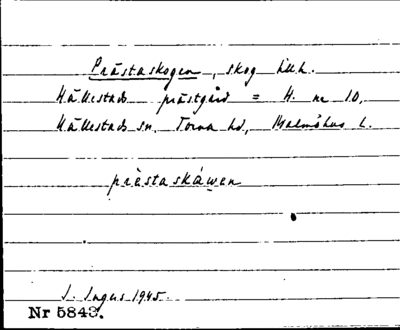 Prästaskogen, skog till h.
Hällestads prästgård = H. nr 10,
Hällestads sn. Torna hd, Malmöhus l.
prèstaskáwen
I. Ingers 1945.
Nr 5843.